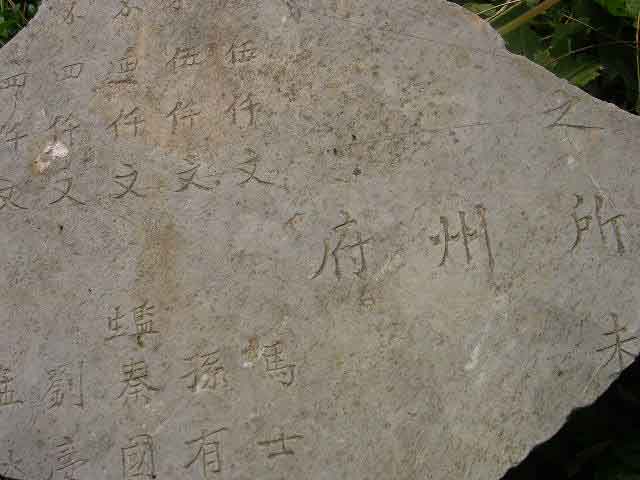 之所未
州
府
伍仟文馮士
伍仟文孫有
仟文秦國
四仟文劉
四仟文孟